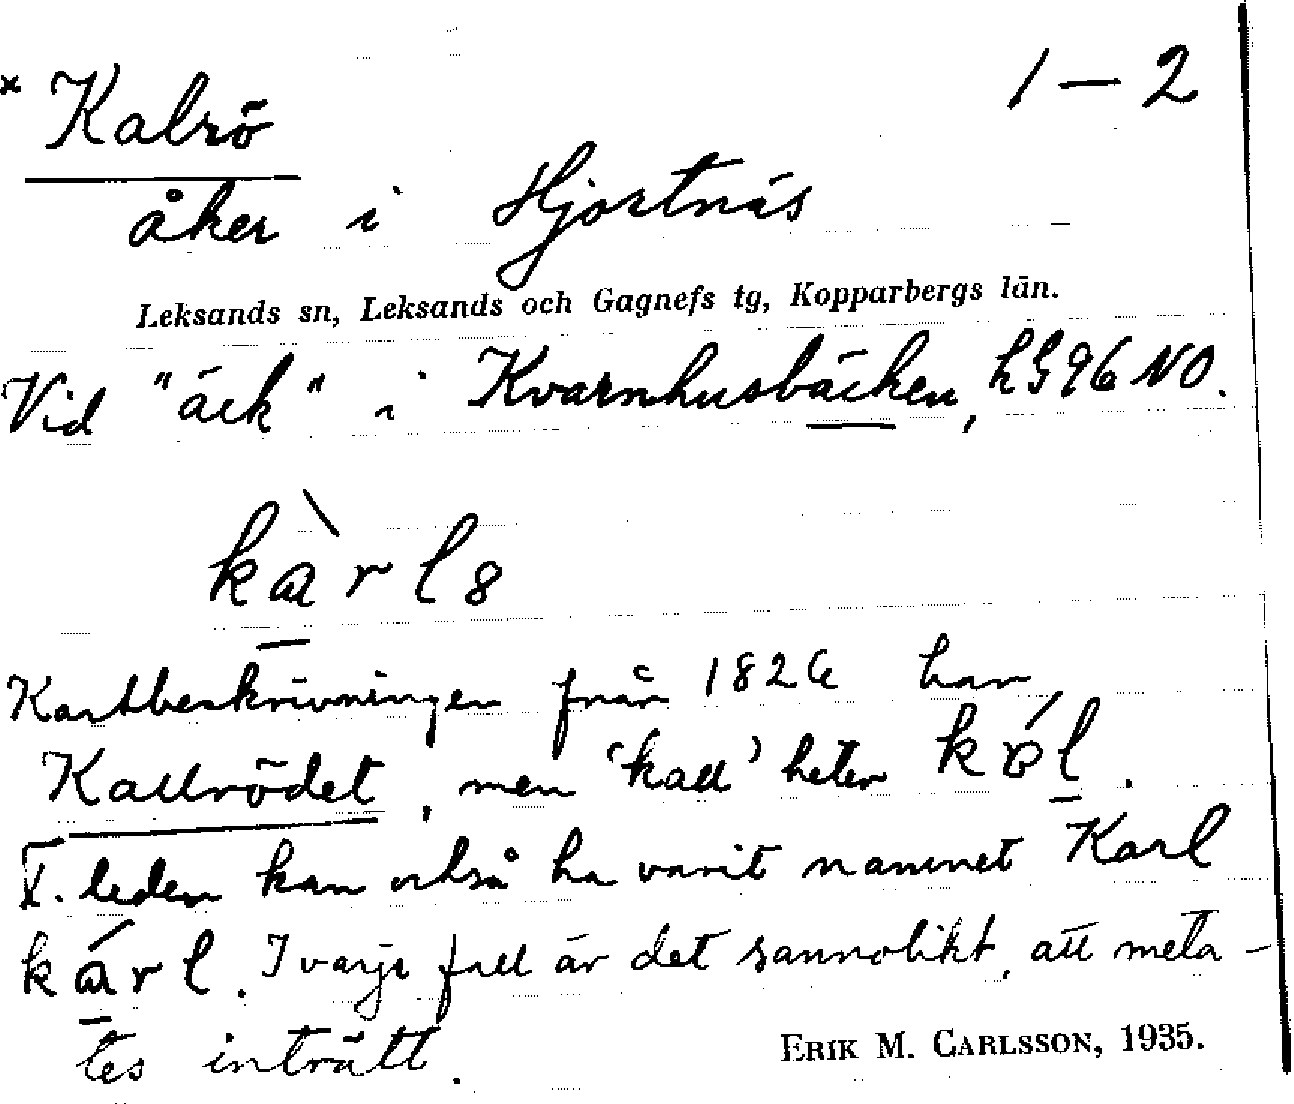 * Kalrö 1–2
åker i Hjortnäs –
Leksands sn, Leksands och Gagnefs tg, Kopparbergs län.
Vid "äck" i Kvarnhusbäcken, hG96NO.
kàrl8
Kartbeskrivningen från 1826 har
Kallrödet, men 'kall' heter kól.
I. leden kan också ha varit namnet Karl
kárl. I varje fall är det sannolikt, att meta-
tes inträtt.
ERIK M. CARLSSON, 1935.